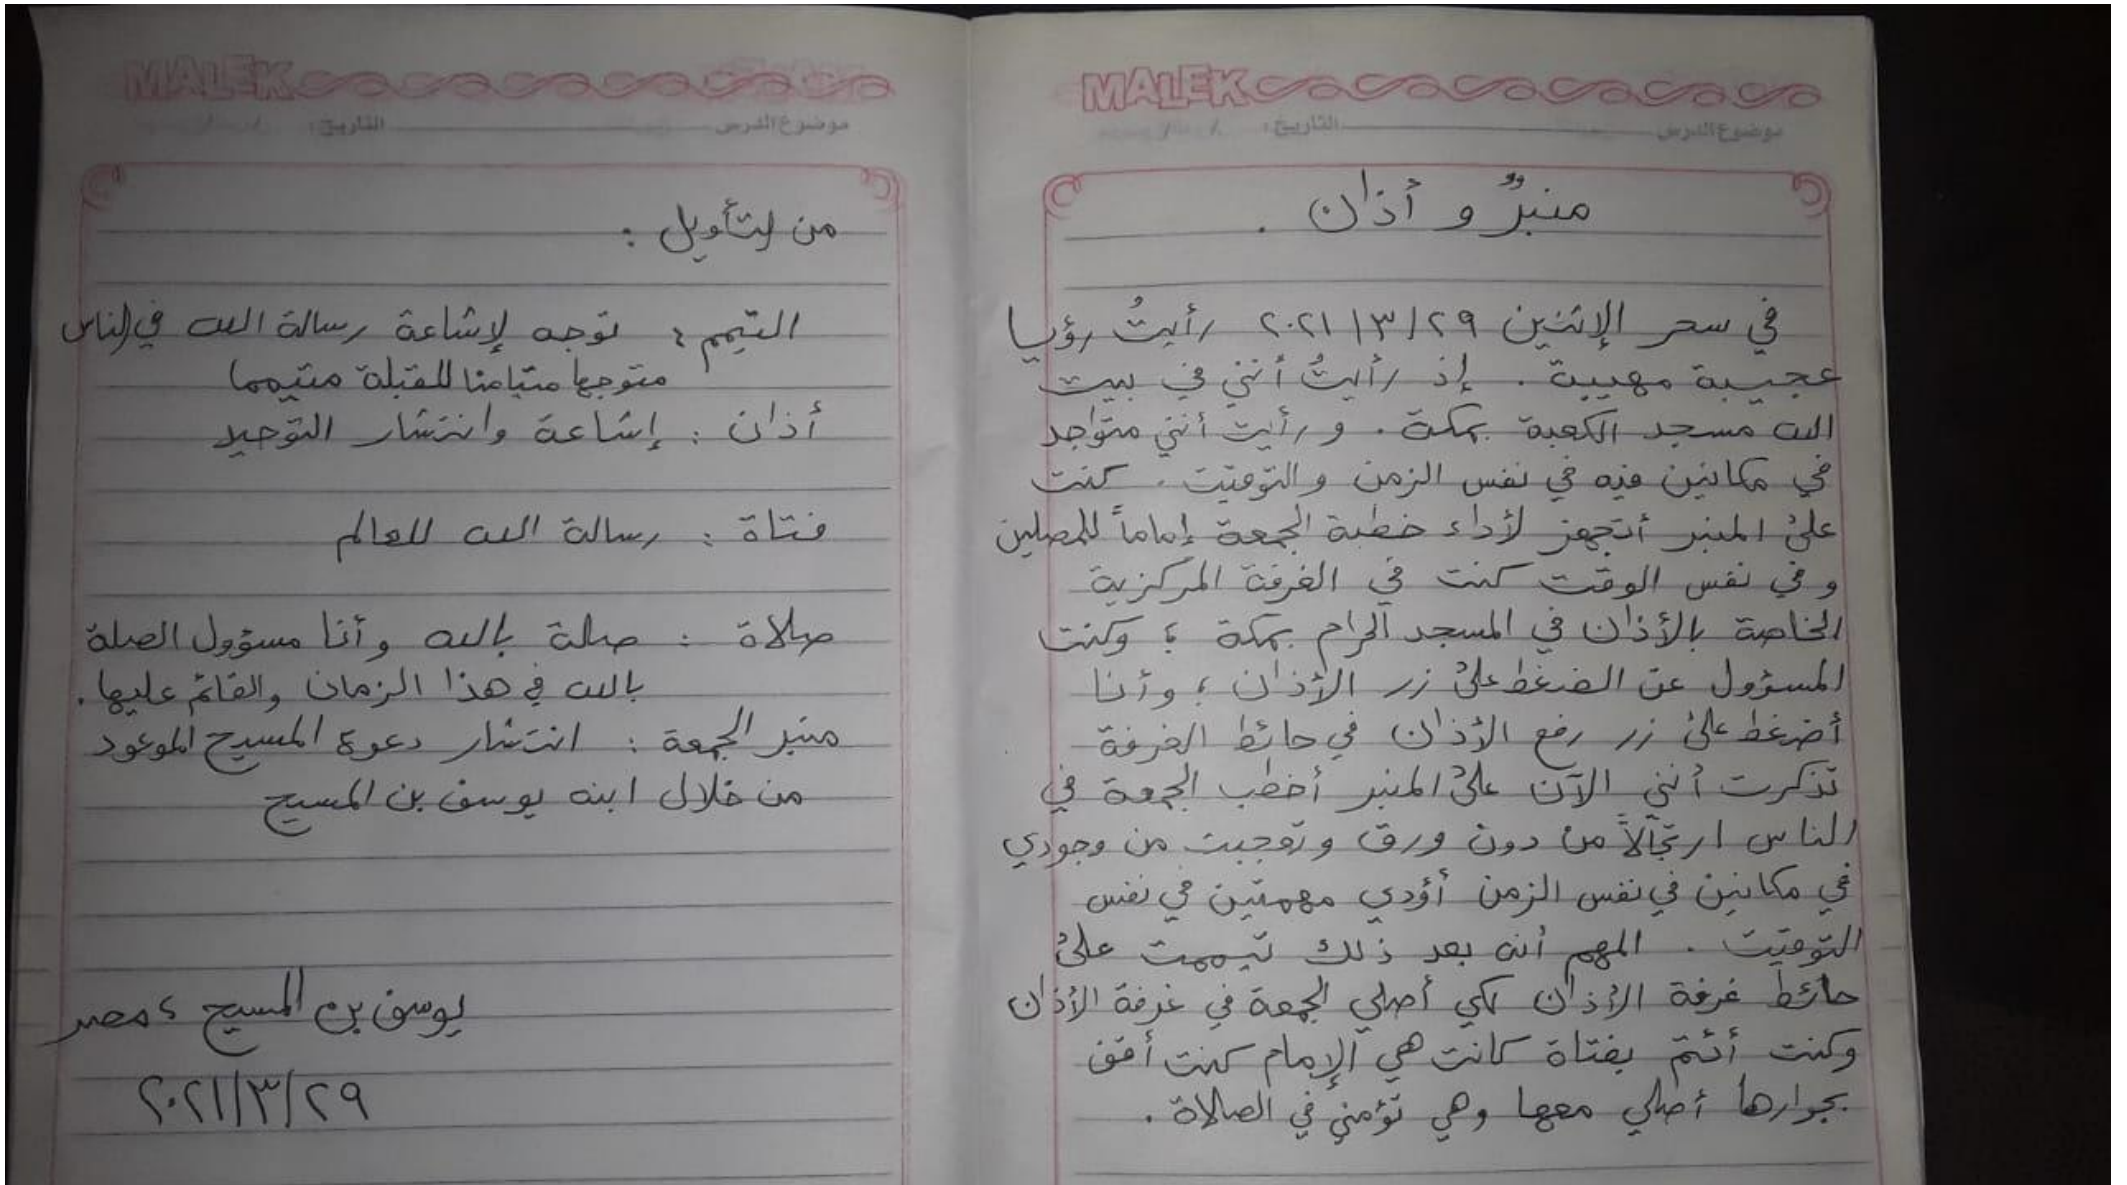 MALEK
موضوع الدرس التاريخ:
منبرٌ و أذان .
في سحر الإثنين ٢٩/٣/٢٠٢١ رأيتُ رؤيا
عجيبة مهيبة . إذ رأيتُ أنني في بيت
الله مسجد الكعبة بمكة . و رأيت أنني متواجد
في مكانين فيه في نفس الزمن و التوقيت . كنت
على المنبر أتجهز لأداء خطبة الجمعة إماماً للمصلين
و في نفس الوقت كنت في الغرفة المركزية
الخاصة بالأذان في المسجد الحرام بمكة ؛ وكنت
المسؤول عن الضغط على زر الأذان ؛ وأنا
أضغط على زر رفع الأذان في حائط الغرفة
تذكرت أنني الآن على المنبر أخطب الجمعة في
الناس ارتجالاً من دون ورق وتعجبت من وجودي
في مكانين في نفس الزمن أؤدي مهمتين في نفس
التوقيت . المهم أنه بعد ذلك تيممت على
حائط غرفة الأذان لكي أصلي الجمعة في غرفة الأذان
وكنت أئتمّ بفتاة كانت هي الإمام كنت أقف
بجوارها أصلي معها وهي تؤمني في الصلاة .
MALEK
موضوع الدرس التاريخ:
من التأويل :
التيمم : توجه لإشاعة رسالة الله في الناس
متوجها متيامنا للقبلة متيمما
أذان : إشاعة وانتشار التوحيد
فتاة : رسالة الله للعالم
صلاة : صلة بالله وأنا مسؤول الصلة
بالله في هذا الزمان والقائم عليها .
منبر الجمعة : انتشار دعوة المسيح الموعود
من خلال ابنه يوسف بن المسيح
يوسف بن المسيح ، مصر
٢٩/٣/٢٠٢١